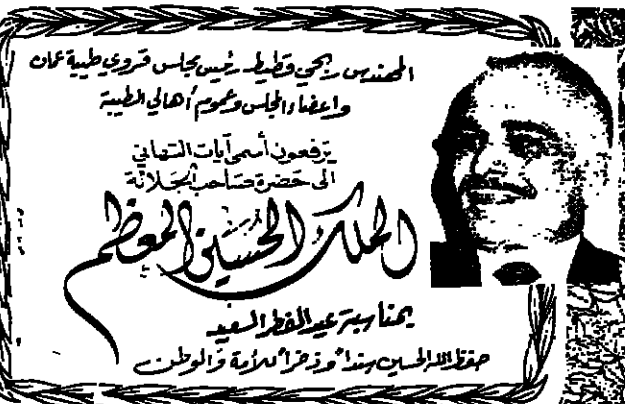 المهندس ربحي قطيط رئيس مجلس قروي طيبة عمان
واعضاء المجلس وعموم أهالي الطيبة
يرفعون أسمى آيات التهاني
الى حضرة صاحب الجلالة
الملك الحسين المعظم
بمناسبة عيد الفطر السعيد
حفظ الله الحسين سنداً وذخراً للأمة والوطن